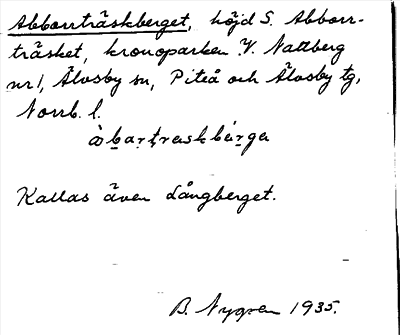 Abborrträskberget, höjd S. Abborr-
träsket, kronoparken V. Nattberg
nr 1, Älvsby sn, Piteå och Älvsby tg,
Norrb. l.
àbartreskbærga
Kallas även Långberget.
B. Nygren 1935.